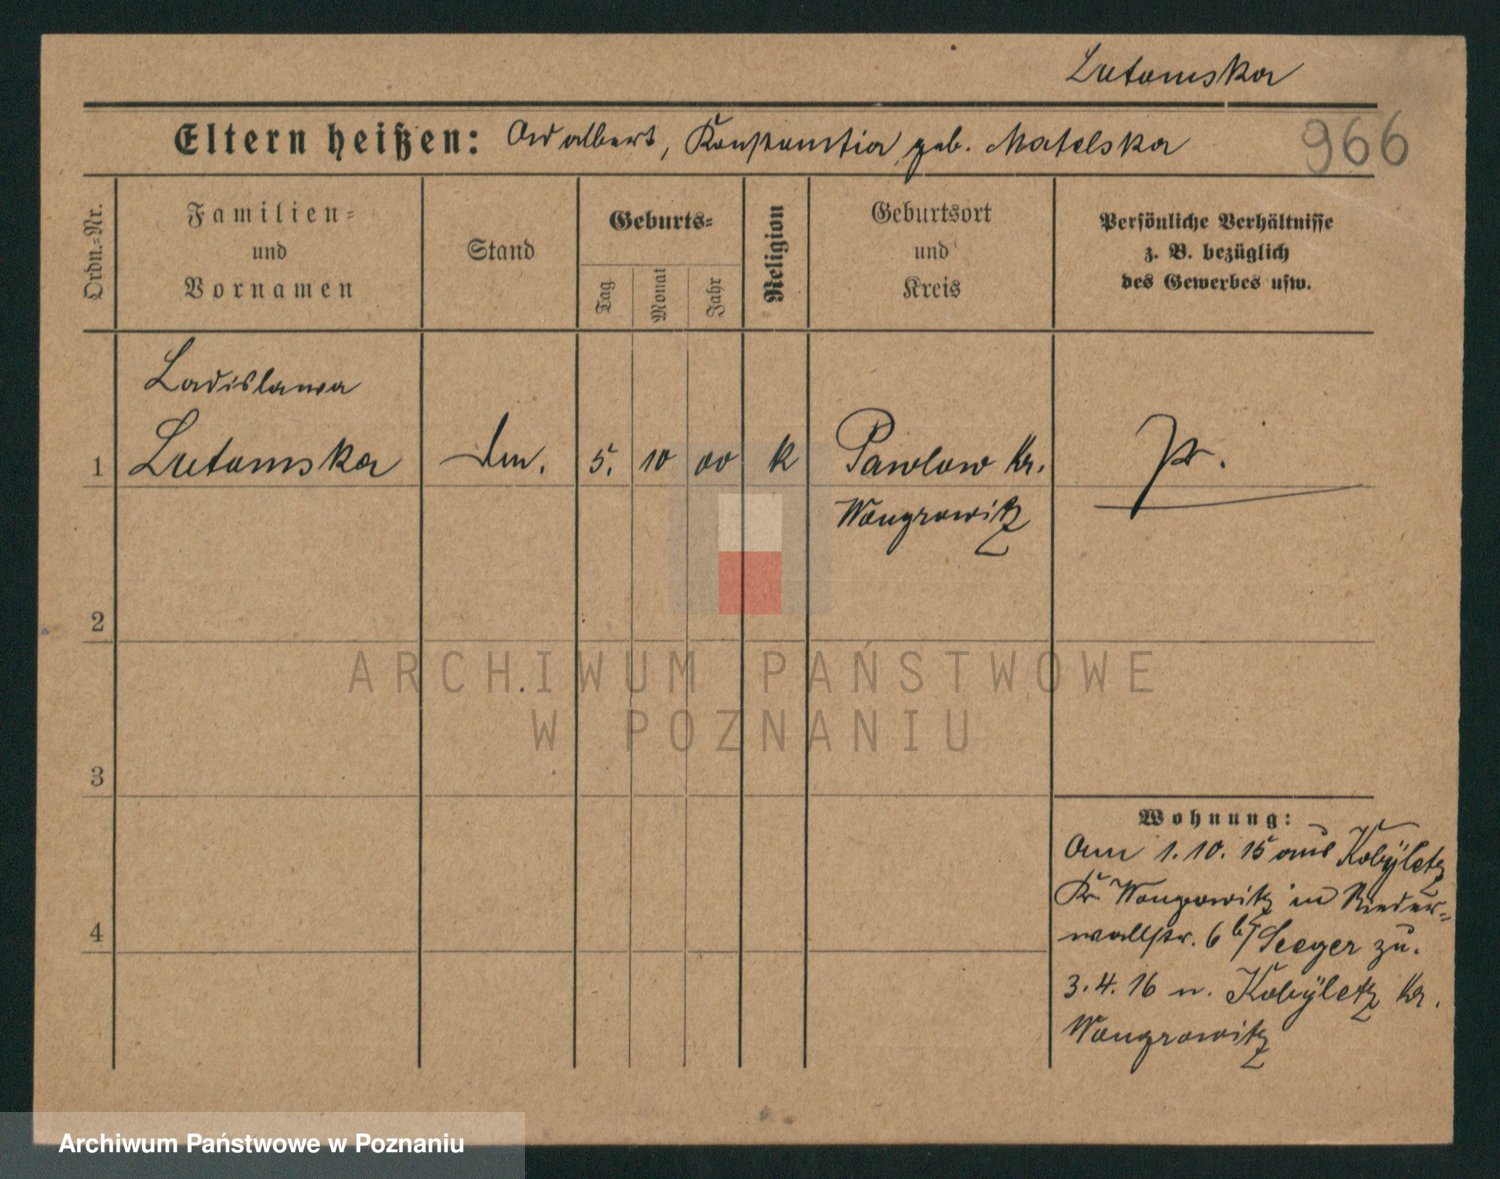 Lutomska
Eltern heißen: Adalbert, Konstantia geb. Matelska
966
Ordn.-Nr.
Familien-
und
Vornamen
Stand
Geburts-
Tag
Monat
Jahr
Religion
Geburtsort
und
Kreis
Persönliche Verhältnisse
z. B. bezüglich
des Gewerbes usw.
Ladislawa
1 Lutomska 5. 10 00 k Pawlow Kr. pr.
Wongrowitz
2
3
4
Wohnung:
Am 1.10.15 aus Kobÿletz
Kr Wongrowitz in Nieder-
wallstr. 6 b/ Seeger zu.
3.4.16 n. Kobÿletz Kr.
Wongrowitz
ARCHIWUM PAŃSTWOWE
W POZNANIU
Archiwum Państwowe w Poznaniu